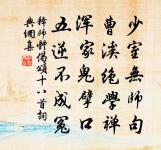 少室無師句
曹溪絕學禪
渾家鬼擘口
五逆不成冤
釋師郫偈頌十八首詞
與綱集